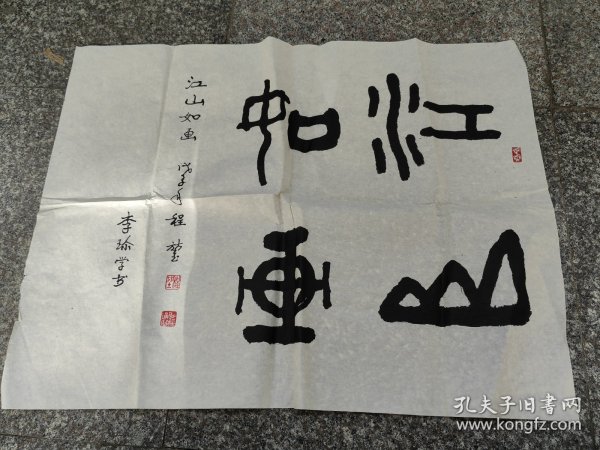 江山
如画
江山如画 戊子年 程
李瑜学书
孔夫子旧书网
www.kongfz.com